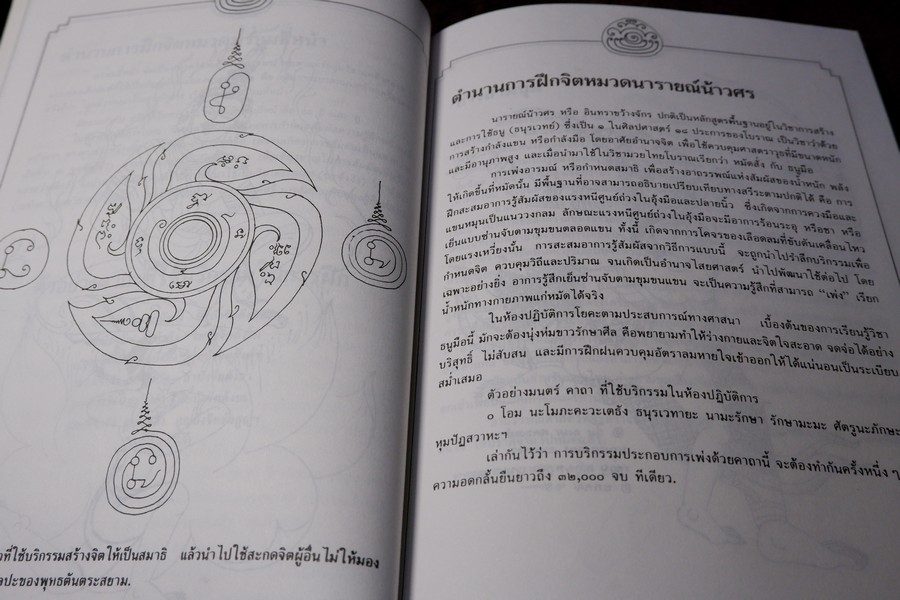 ที่ใช้บริกรรมสร้างจิตให้เป็นสมาธิ แล้วนำไปใช้สะกดจิตผู้อื่น ไม่ให้มอง
ของพุทธตันตระสยาม.
ตำนานการฝึกจิตหมวดนารายณ์น้าวศร
นารายณ์น้าวศร หรือ อินทราขว้างจักร ปกติเป็นหลักสูตรพื้นฐานอยู่ในวิชาการสร้าง
และการใช้ธนู (ธนุรเวทย์) ซึ่งเป็น ๑ ในศิลปศาสตร์ ๑๘ ประการของโบราณ เป็นวิชาว่าด้วย
การสร้างกำลังแขน หรือกำลังมือ โดยอาศัยอำนาจจิต เพื่อใช้ควบคุมศาสตราวุธที่มีขนาดหนัก
และมีอานุภาพสูง และเมื่อนำมาใช้ในวิชามวยไทยโบราณเรียกว่า หมัดสั่ง กับ ธนูมือ
การเพ่งอารมณ์ หรือกำหนดสมาธิ เพื่อสร้างอาถรรพณ์แห่งสัมผัสของน้ำหนัก พลัง
ให้เกิดขึ้นที่หมัดนั้น มีพื้นฐานที่อาจสามารถอธิบายเปรียบเทียบทางสรีระตามปกติได้ คือ การ
ฝึกสะสมอาการรู้สัมผัสของแรงหนีศูนย์ถ่วงในอุ้งมือและปลายนิ้ว ซึ่งเกิดจากการควงมือและ
แขนหมุนเป็นแนววงกลม ลักษณะแรงหนีศูนย์ถ่วงในอุ้งมือจะมีอาการร้อนระอุ หรือชา หรือ
เย็นแบบซ่านจับตามขุมขนตลอดแขน ทั้งนี้ เกิดจากการโคจรของเลือดลมที่ขับดันเคลื่อนไหว
โดยแรงเหวี่ยงนั้น การสะสมอาการรู้สัมผัสจากวิธีการแบบนี้ จะถูกนำไปรำลึกบริกรรมเพื่อ
กำหนดจิต ควบคุมวิถีและปริมาณ จนเกิดเป็นอำนาจไสยศาสตร์ นำไปพัฒนาใช้ต่อไป โดย
เฉพาะอย่างยิ่ง อาการรู้สึกเย็นซ่านจับตามขุมขนแขน จะเป็นความรู้สึกที่สามารถ “เพ่ง” เรียก
น้ำหนักทางกายภาพแก่หมัดได้จริง
ในห้องปฏิบัติการโยคะตามประสบการณ์ทางศาสนา เบื้องต้นของการเรียนรู้วิชา
ธนูมือนี้ มักจะต้องนุ่งห่มขาวรักษาศีล คือพยายามทำให้ร่างกายและจิตใจสะอาด จดจ่อได้อย่าง
บริสุทธิ์ ไม่สับสน และมีการฝึกฝนควบคุมอัตราลมหายใจเข้าออกให้ได้แน่นอนเป็นระเบียบ
สม่ำเสมอ
ตัวอย่างมนตร์ คาถา ที่ใช้บริกรรมในห้องปฏิบัติการ
๐ โอม นะโมภะคะวะเตธัง ธนุรเวทายะ นามะรักษา รักษามะมะ ศัตรูนะภักษะ
หุมปัฏสวาหะฯ
เล่ากันไว้ว่า การบริกรรมประกอบการเพ่งด้วยคาถานี้ จะต้องทำกันครั้งหนึ่ง ๆ
ความอดกลั้นยืนยาวถึง ๓๒,๐๐๐ จบ ทีเดียว.